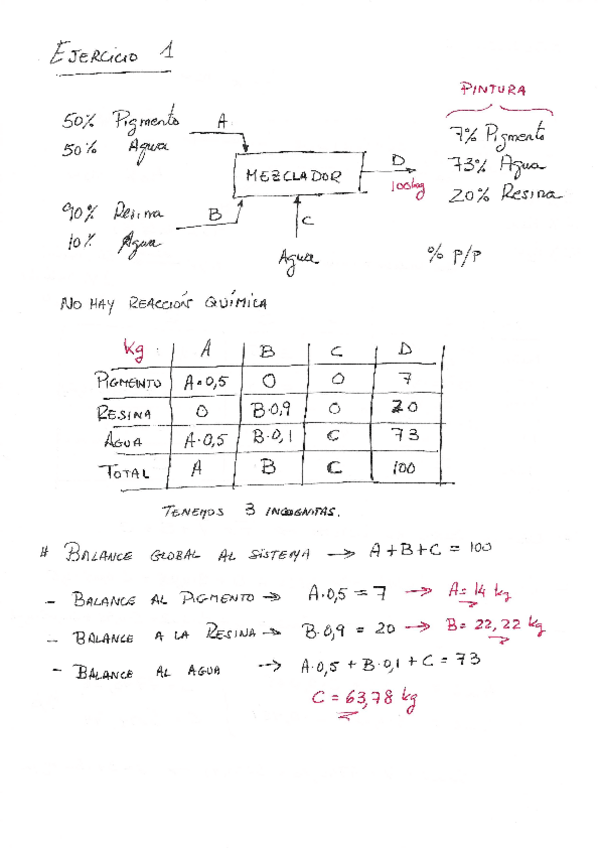 EJERCICIO 1
PINTURA
50% Pigmento A
50% Agua
7% Pigmento
73% Agua
20% Resina
MEZCLADOR
D
100kg
90% Resina
10% Agua
B
C
Agua
% P/P
NO HAY REACCIÓN QUÍMICA
Kg. A B C D
PIGMENTO A·0,5 0 0 7
RESINA 0 B·0,9 0 20
AGUA A·0,5 B·0,1 C 73
TOTAL A B C 100
TENEMOS 3 INCOGNITAS.
# BALANCE GLOBAL AL SISTEMA → A+B+C = 100
- BALANCE AL PIGMENTO → A·0,5 = 7 → A= 14 kg
- BALANCE A LA RESINA → B·0,9 = 20 → B= 22,22 kg
- BALANCE AL AGUA → A·0,5 + B·0,1 + C = 73
C = 63,78 kg